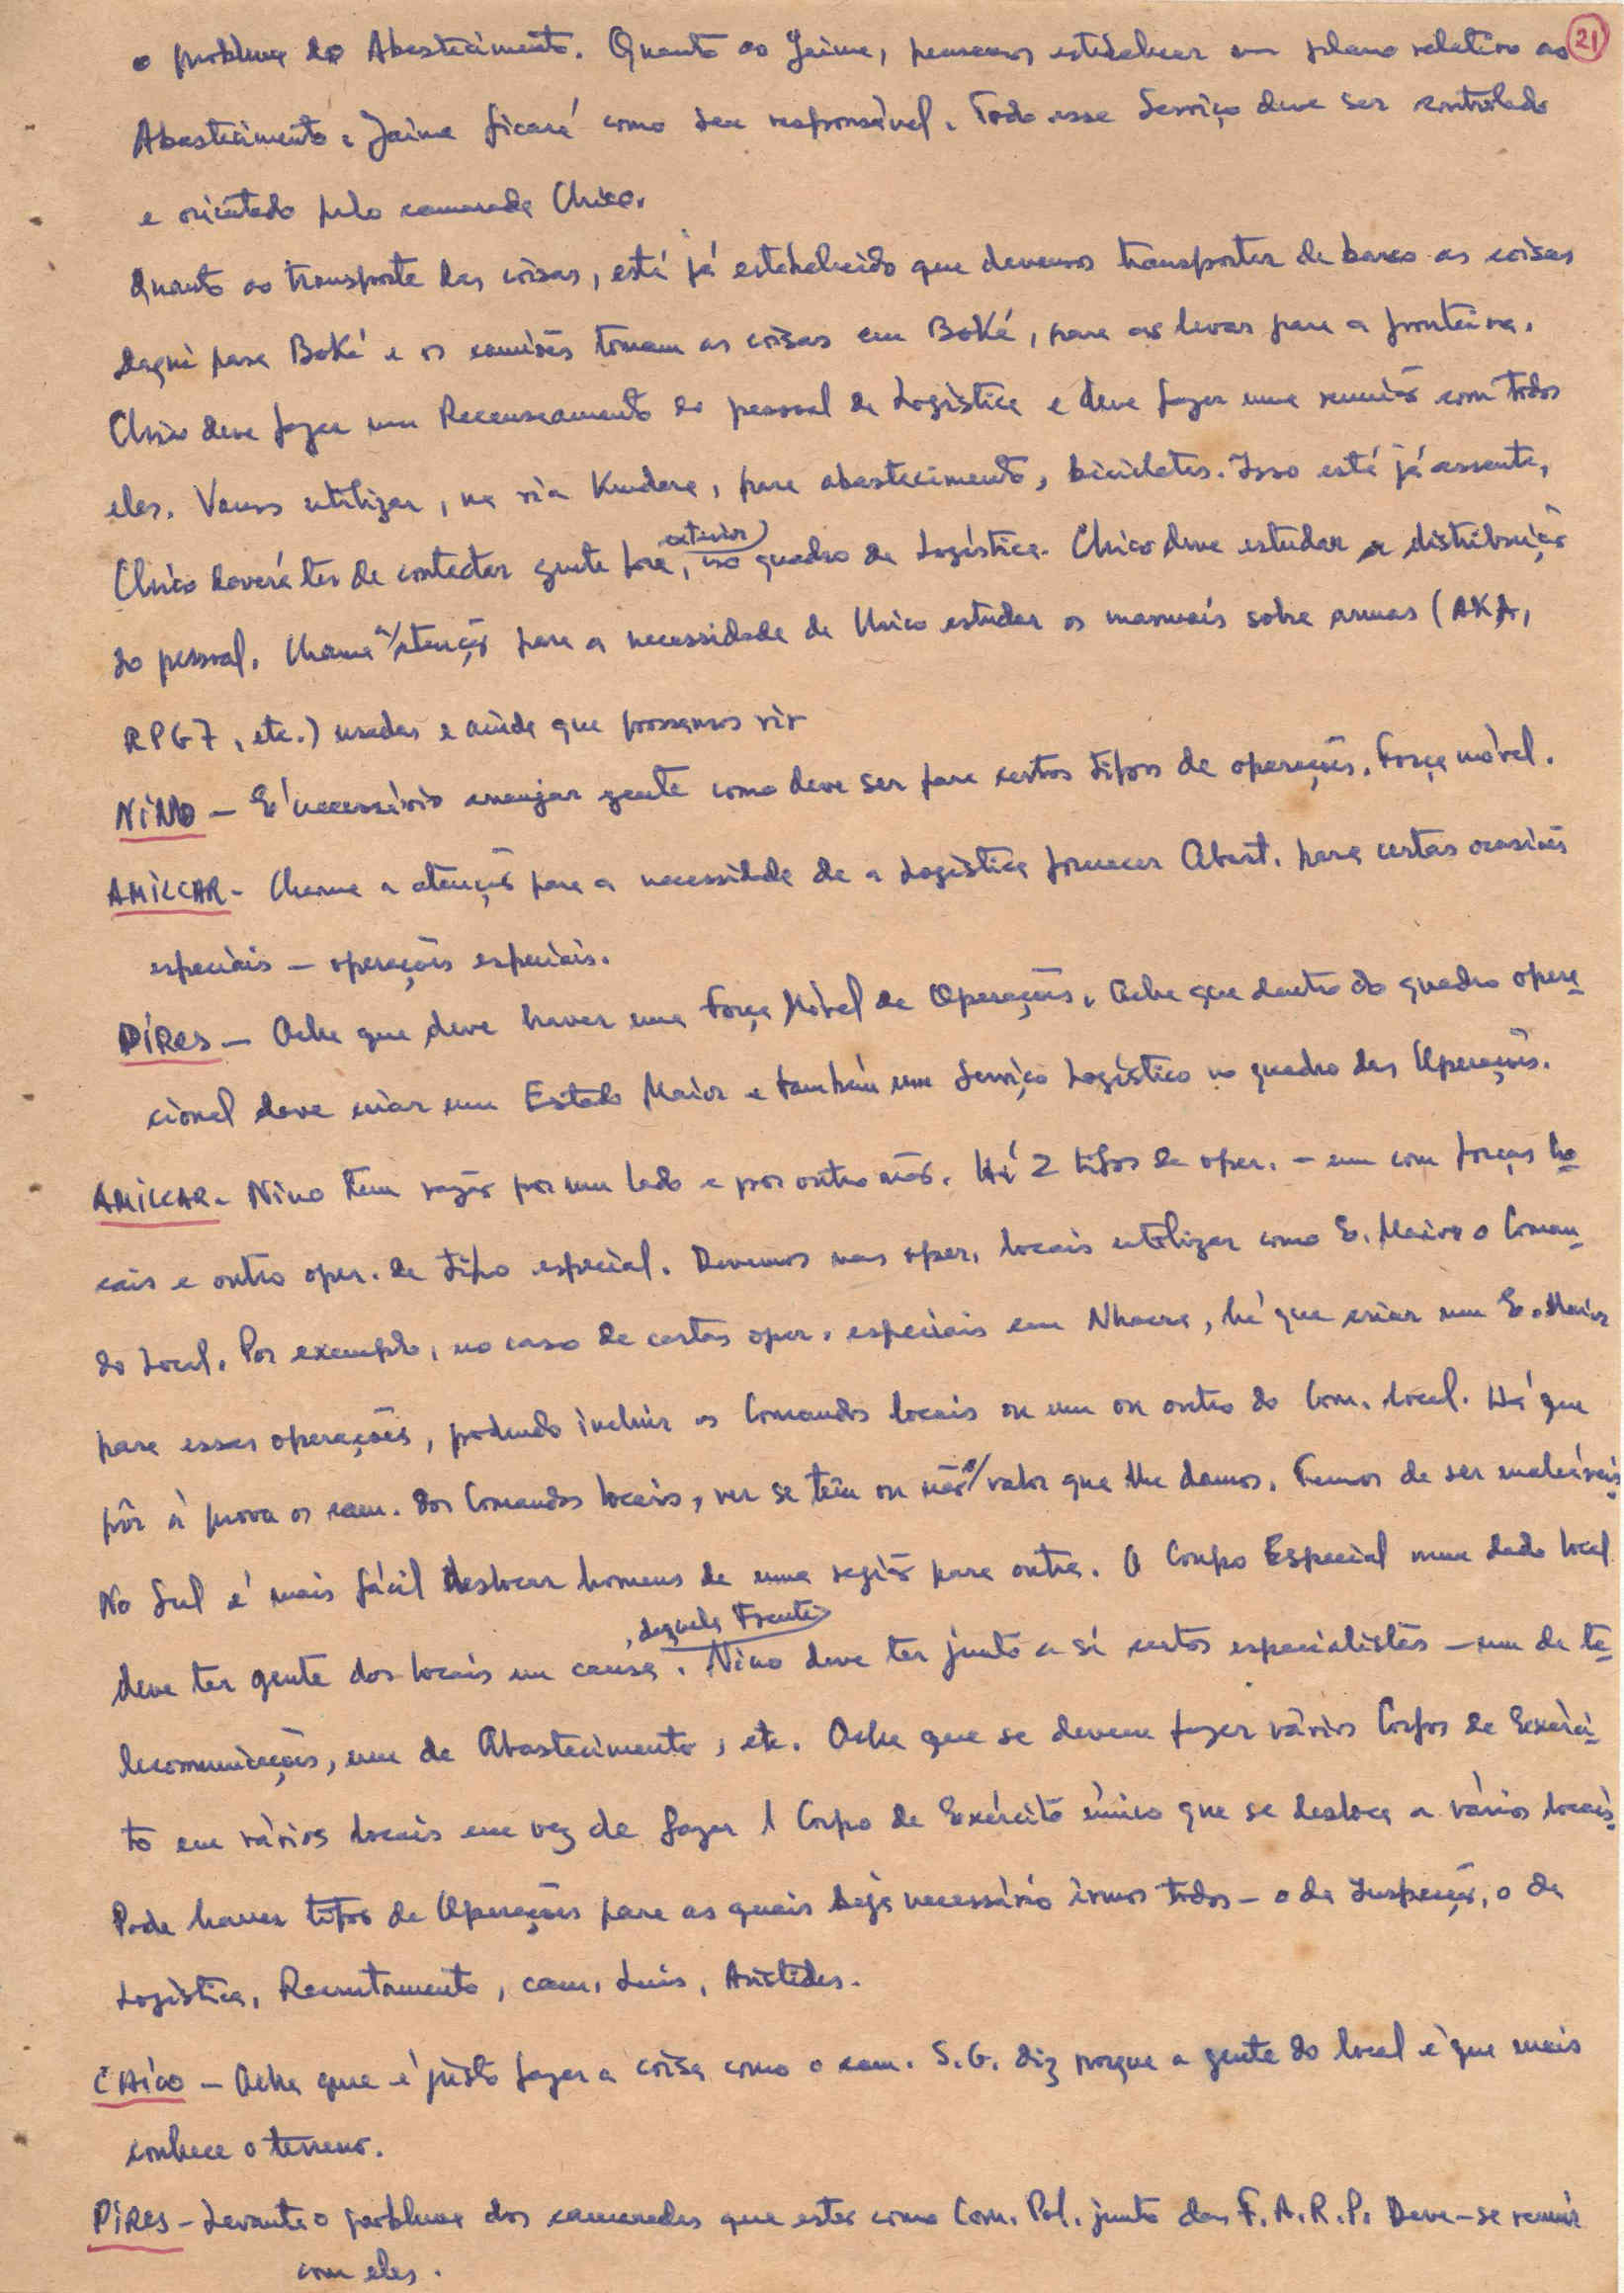 21
o problema do Abastecimento. Quanto ao Jaime, pensamos estabelecer um plano relativo ao
Abastecimento e Jaime ficará como seu responsável. Todo esse Serviço deve ser controlado
e orientado pelo camarada Chico.
Quanto ao transporte das coisas, está já estabelecido que devemos transportar de barco as coisas
daqui para Boké e os camiões tomam as coisas em Boké, para as levar para a fronteira.
Chico deve fazer um Recenseamento do pessoal da Logística e deve fazer uma reunião com todos
eles. Vamos utilizar, na via Kandara, para abastecimento, bicicletas. Isso está já assente,
exterior
Chico deverá ter de contactar gente fora, no quadro da Logística. Chico deve estudar a distribuição
do pessoal. Chama a/ atenção para a necessidade de Chico estudar os manuais sobre armas (AKA,
RPG7, etc.) usadas e ainda que possamos vir
NINO - É necessário arranjar gente como deve ser para certos tipos de operações. Força móvel.
AMILCAR - Chama a atenção para a necessidade de a Logística fornecer Abast. para certas ocasiões
especiais - operações especiais.
PIRES - Acha que deve haver uma Força Móvel de Operações. Acha que dentro do quadro opera-
cional deve criar um Estado Maior e também um Serviço Logístico no quadro das Operações.
AMILCAR - Nino tem razão por um lado e por outro não. Há 2 tipos de oper. - um com forças lo-
cais e outro oper. de tipo especial. Devemos nas oper. locais utilizar como E. Maior o Coman-
do Local. Por exemplo, no caso de certas oper. especiais em Nhacra, há que criar um E. Maior
para essas operações, podendo incluir os Comandos locais ou um ou outro do Com. local. Há que
pôr à prova os cam. dos Comandos locais, ver se têm ou não o/ valor que lhe damos. Temos de ser maleáveis.
No Sul é mais fácil deslocar homens de uma região para outra. O Corpo Especial num dado local
, daquela Frente
deve ter gente dos locais em causa. Nino deve ter junto a si certos especialistas - um de te-
lecomunicações, um de Abastecimento, etc. Acha que se devem fazer vários Corpos de Exérci-
to em vários locais em vez de fazer 1 Corpo de Exército único que se desloca a vários locais.
Pode haver tipos de Operações para as quais seja necessário irmos todos - o da Inspecção, o da
Logística, Recrutamento, cam. Luis, Aristides.
CHICO - Acha que é justo fazer a coisa como o cam. S.G. diz porque a gente do local é que mais
conhece o terreno.
PIRES - Levanta o problema dos camaradas que estão como Com. Pol. junto das F.A.R.P. Deve-se reunir
com eles.